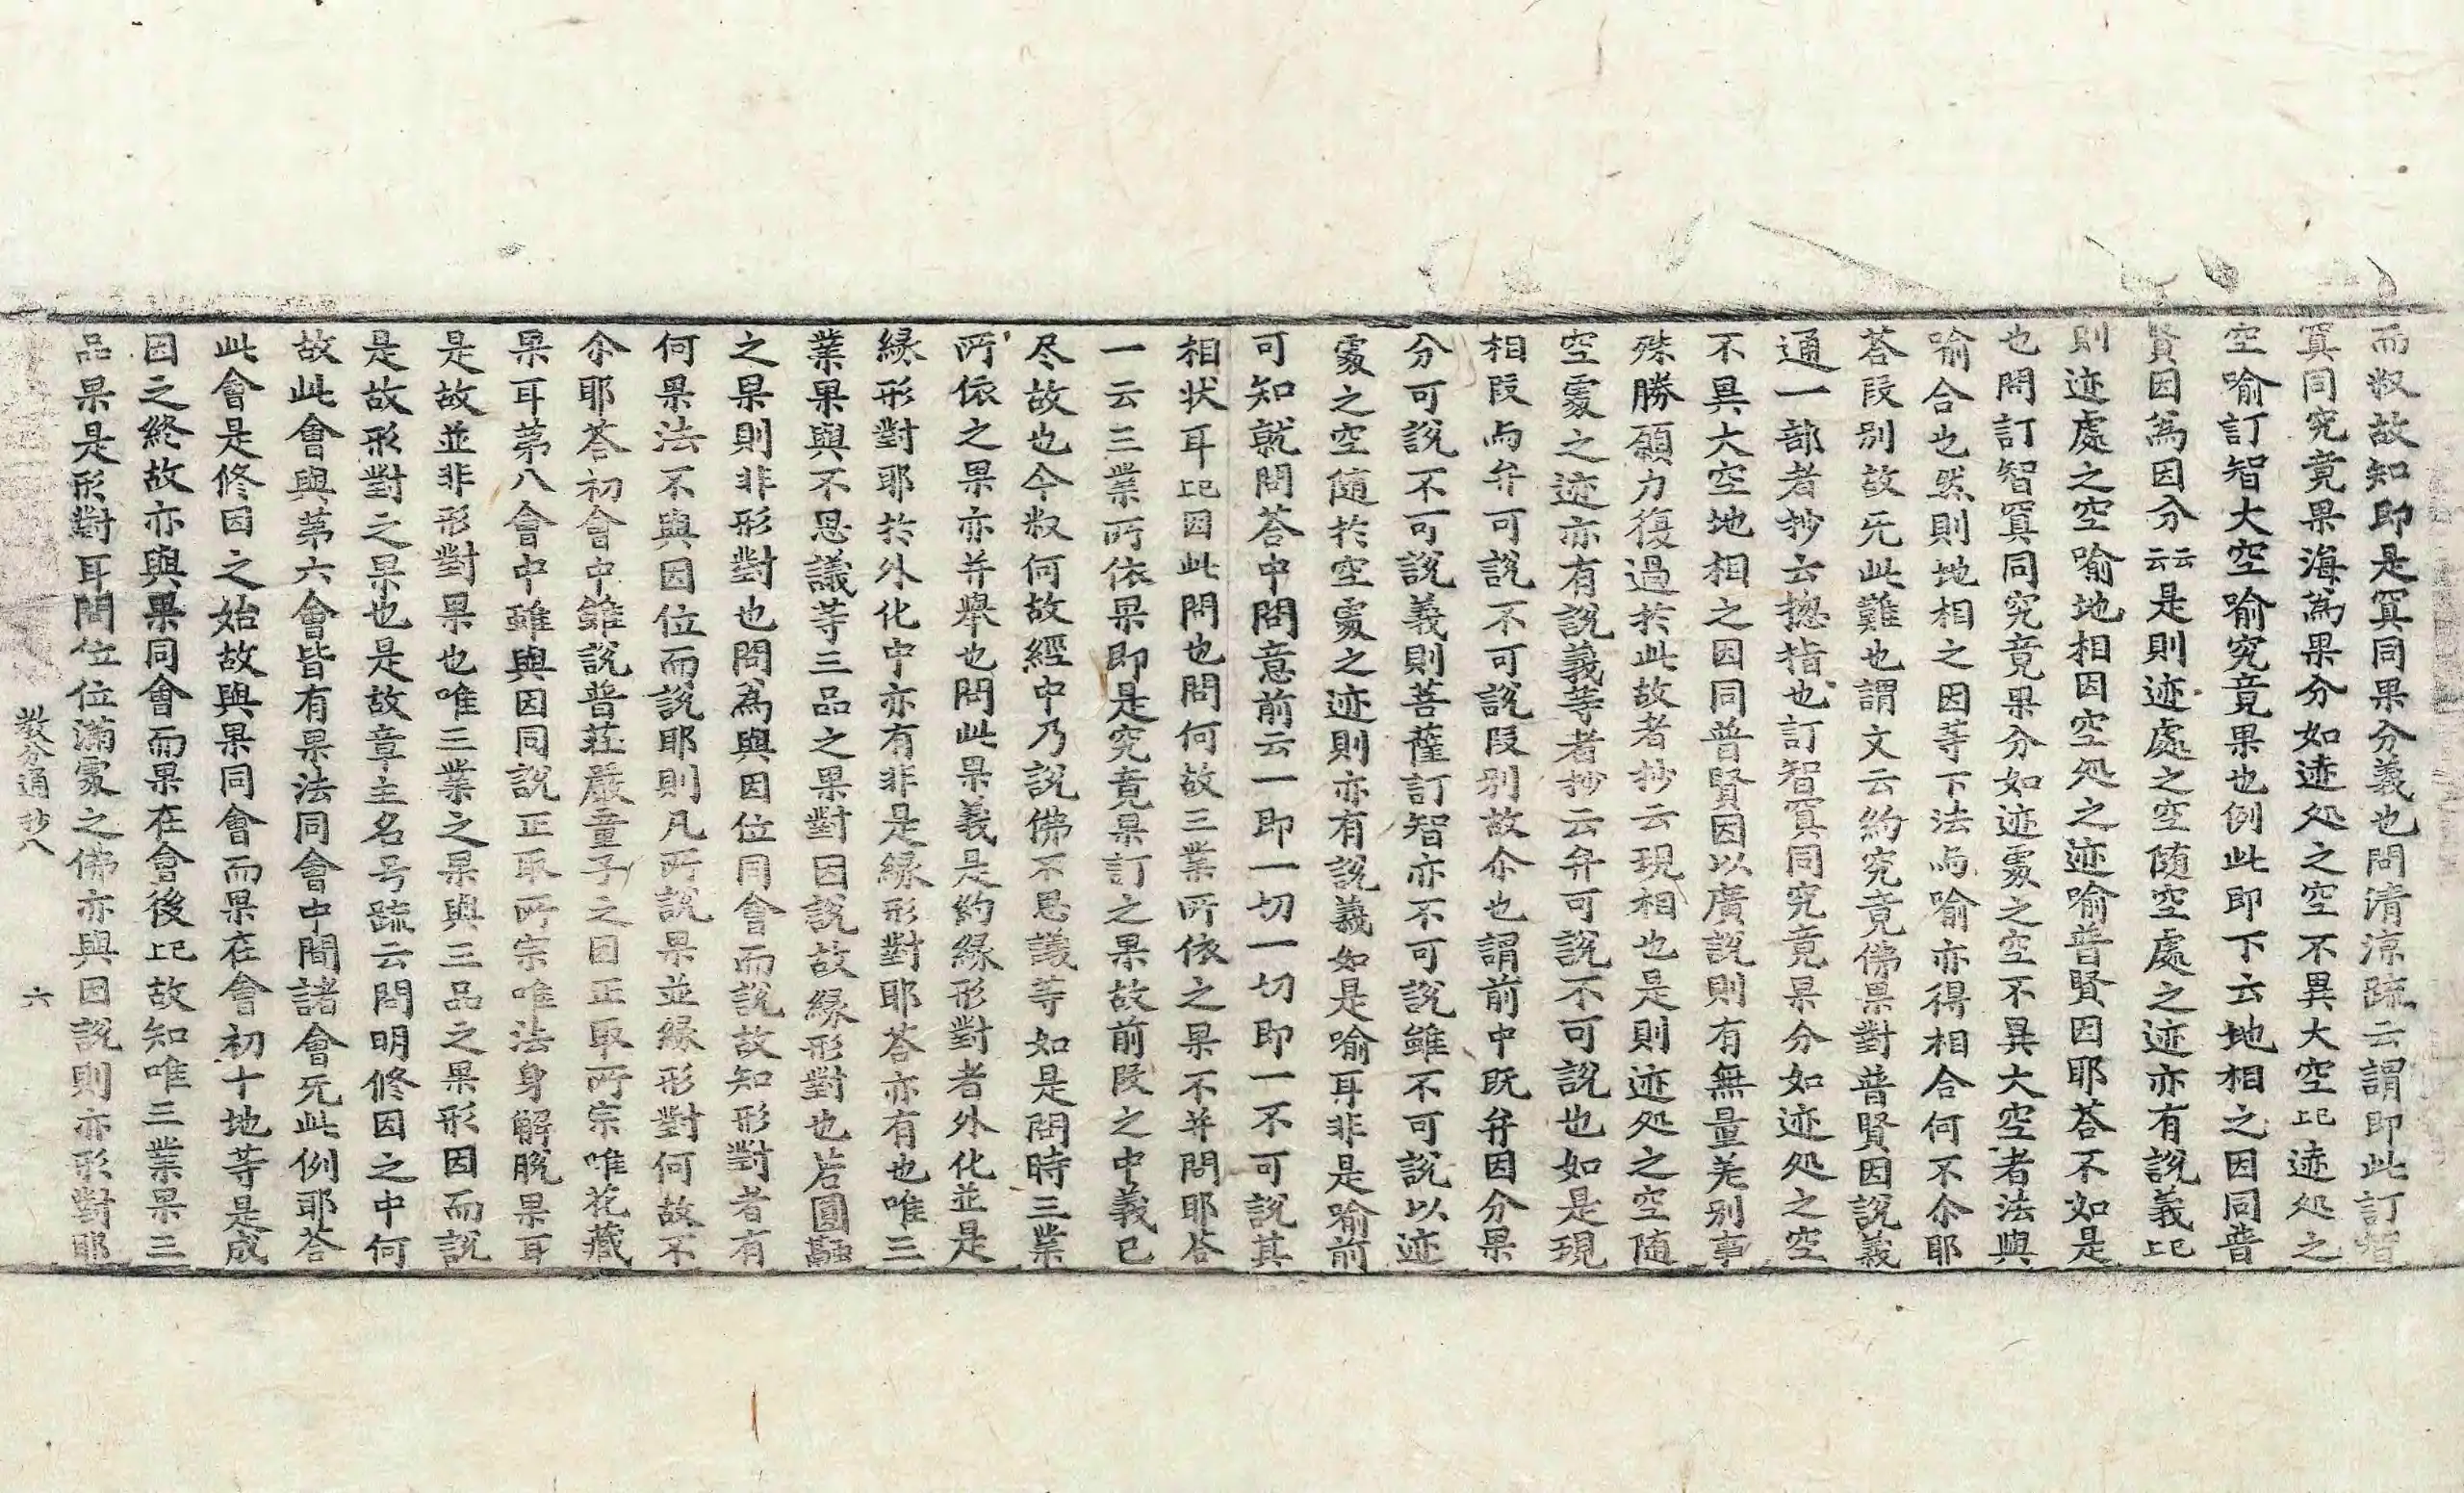 而叙故知即是冥同果分義也問清涼疏云謂即此訂智
冥同究竟果海為果分如迹処之空不異大空已上迹処之
空喻訂智大空喻究竟果也例此即下云地相之因同普
賢因為因分云云是則迹處之空随空處之迹亦有說義已上
則迹處之空喻地相因空処之迹喻普賢因耶荅不如是
也問訂智冥同究竟果分如迹處之空不異大空者法與
喻合也然則地相之因等下法与喻亦得相合何不尒耶
荅段別故无此難也謂文云約究竟佛果對普賢因說義
通一部者抄云揔指也訂智冥同究竟果分如迹処之空
不異大空地相之因同普賢因以廣說則有無量羌別事
殊勝願力復過於此故者抄云現相也是則迹処之空随
空處之迹亦有說義等者抄云弁可說不可說也如是現
相段与弁可說不可說段別故尒也謂前中既弁因分果
分可說不可說義則菩薩訂智亦不可說雖不可說以迹
處之空随於空處之迹則亦有說義如是喻耳非是喻前
可知就問荅中問意前云一即一切一切即一不可說其
相状耳已上因此問也問何故三業所依之果不并問耶荅
一云三業所依果即是究竟果訂之果故前段之中義已
尽故也今叙何故經中乃說佛不思議等如是問時三業
所依之果亦并舉也問此果義是約緣形對者外化並是
緣形對耶於外化中亦有非是緣形對耶荅亦有也唯三
業果與不思議等三品之果對因說故緣形對也若圓融
之果則非形對也問為與因位同會而說故知形對者有
何果法不與因位而說耶則凡所說果並緣形對何故不
尒耶荅初會中雖說普莊嚴童子之因正取所宗唯花藏
果耳苐八會中雖與因同說正取所宗唯法身解脫果耳
是故並非形對果也唯三業之果與三品之果形因而說
是故形對之果也是故章主名号䟽云問明修因之中何
故此會與苐六會皆有果法同會中間諸會无此例耶荅
此會是修因之始故與果同會而果在會初十地等是成
因之終故亦與果同會而果在會後已上故知唯三業果三
品果是形對耳問位位滿處之佛亦與因說則亦形對耶
教分通抄八　六